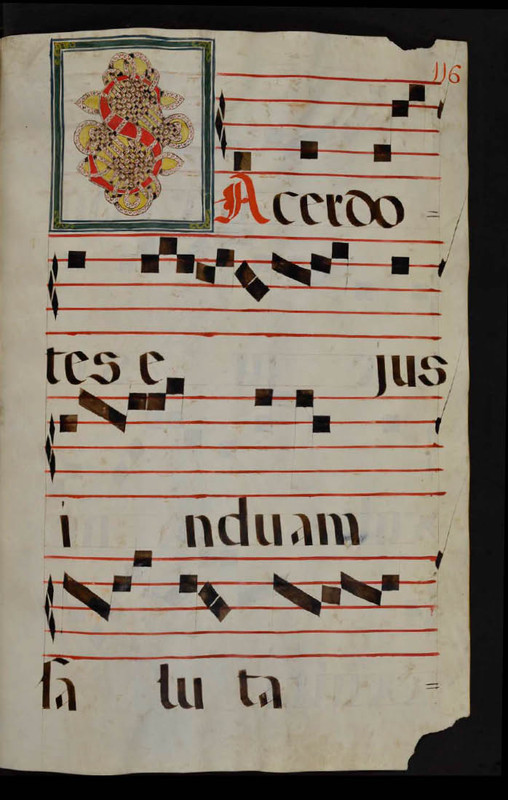 116
SAcerdo=
tes e jus
induam
sa lu ta=